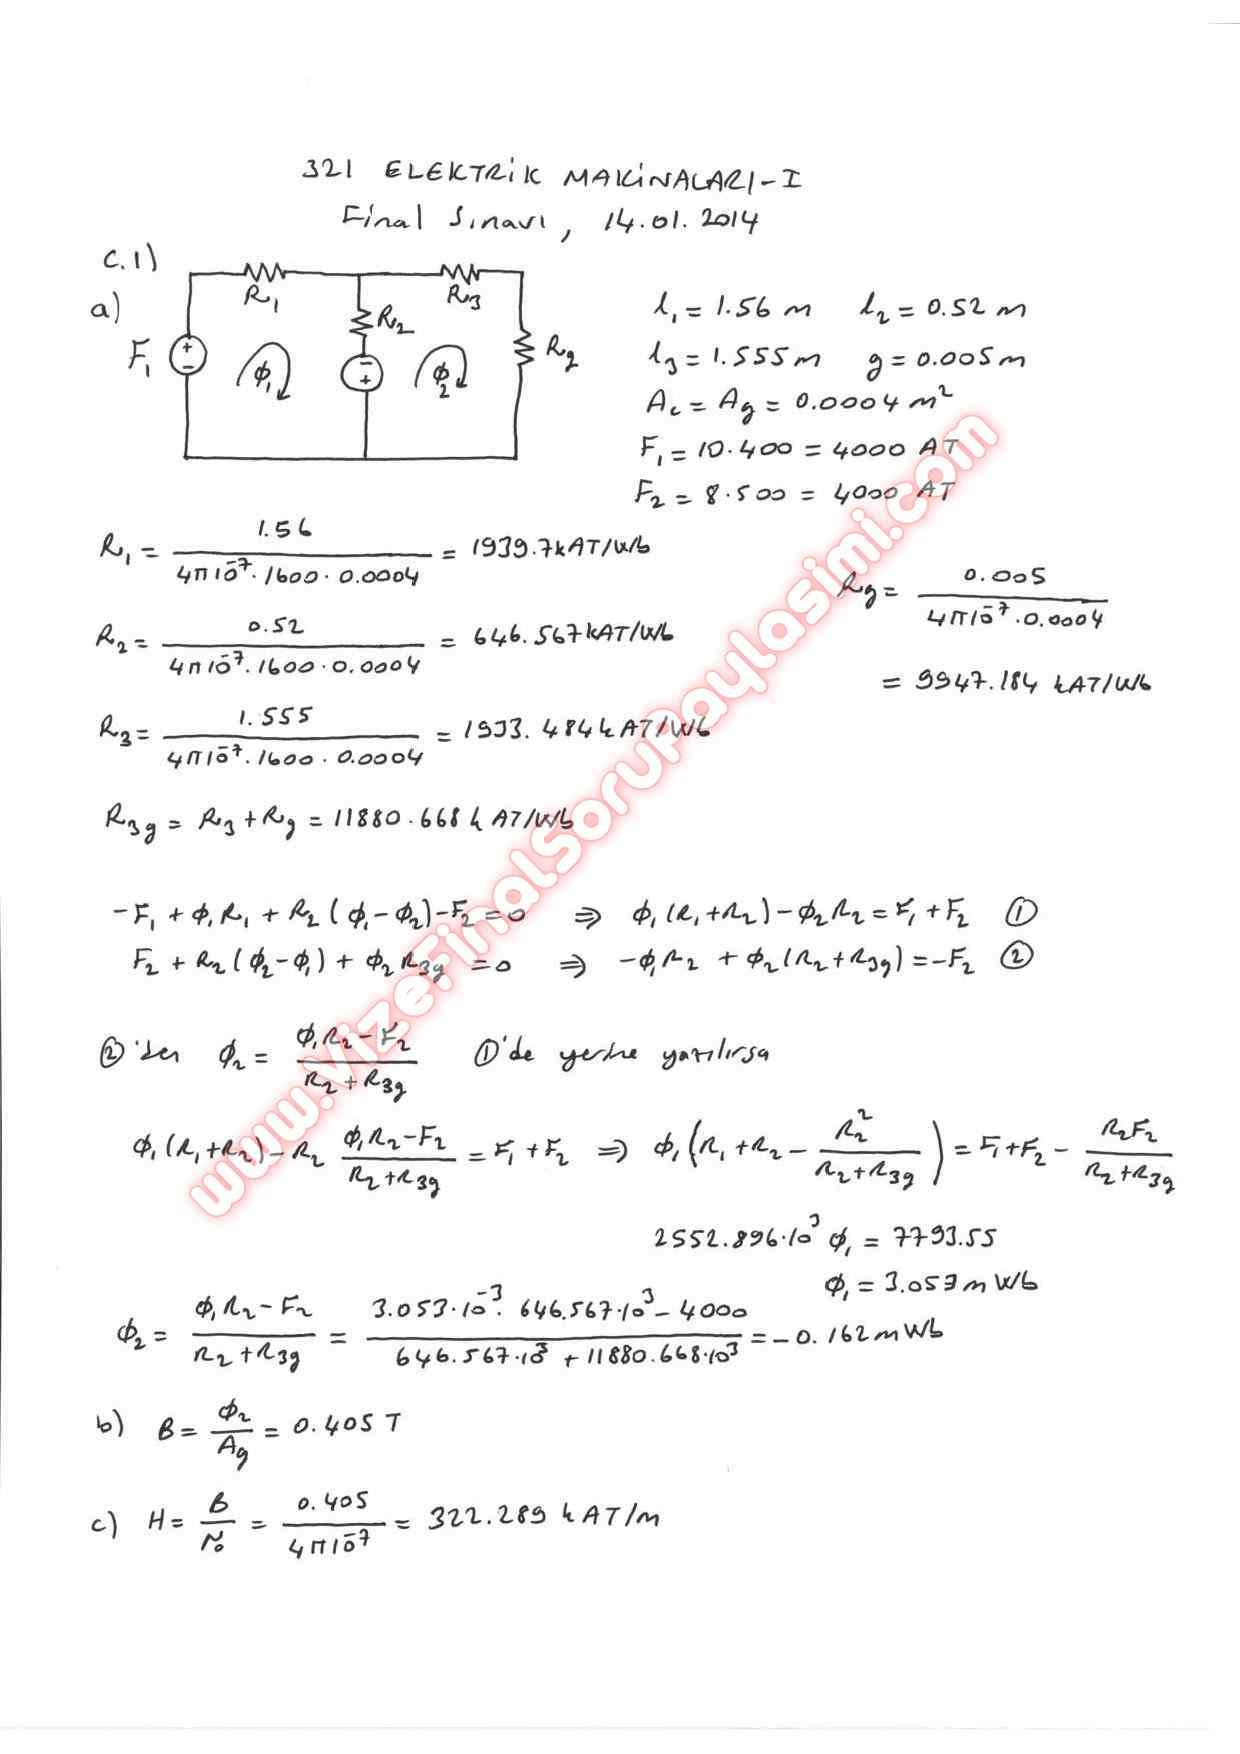 321 ELEKTRİK MAKİNALARI-I
Final Sınavı, 14.01.2014
C.1)
a)
R1 R2 R3 Rg
F1 + - - + Φ1 Φ2
l1 = 1.56 m l2 = 0.52 m
l3 = 1.555 m g = 0.005 m
Ac = Ag = 0.0004 m²
F1 = 10.400 = 4000 AT
F2 = 8.500 = 4000 AT
R1 = 1.56 / (4π10⁻⁷.1600.0.0004) = 1939.7kAT/Wb
R2 = 0.52 / (4π10⁻⁷.1600.0.0004) = 646.567kAT/Wb
Rg = 0.005 / (4π10⁻⁷.0.0004)
= 9947.184 kAT/Wb
R3 = 1.555 / (4π10⁻⁷.1600.0.0004) = 1933.484k AT/Wb
R3g = R3 + Rg = 11880.668 k AT/Wb
-F1 + Φ1R1 + R2(Φ1-Φ2)-F2 = 0 ⇒ Φ1(R1+R2)-Φ2R2 = F1+F2 ①
F2 + R2(Φ2-Φ1) + Φ2R3g = 0 ⇒ -Φ1R2 + Φ2(R2+R3g) = -F2 ②
②'den Φ2 = (Φ1R2-F2) / (R2+R3g) ①'de yerine yazılırsa
Φ1(R1+R2)-R2 (Φ1R2-F2)/(R2+R3g) = F1+F2 ⇒ Φ1(R1+R2 - R2²/(R2+R3g)) = F1+F2 - R2F2/(R2+R3g)
2552.896.10³ Φ1 = 7793.55
Φ1 = 3.053 m Wb
Φ2 = (Φ1R2-F2)/(R2+R3g) = (3.053.10⁻³. 646.567.10³ - 4000)/(646.567.10³ + 11880.668.10³) = -0.162 mWb
b) B = Φ2/Ag = 0.405 T
c) H = B/μ0 = 0.405/(4π10⁻⁷) = 322.289 k AT/m
www.VizeFinalSoruPaylasimi.com